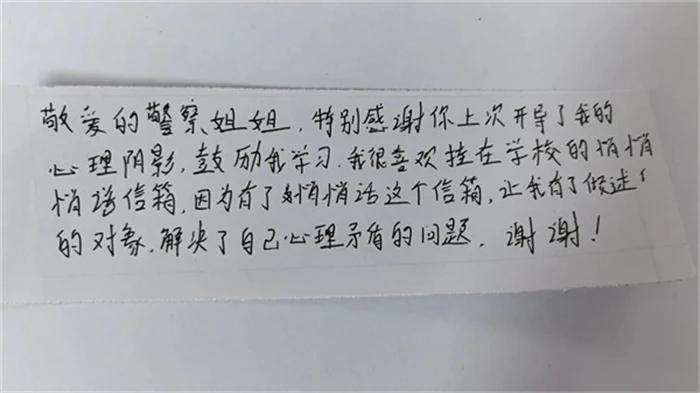 敬爱的警察姐姐，特别感谢你上次开导了我的
心理阴影，鼓励我学习.我很喜欢挂在学校的悄悄
悄话信箱，因为有了悄悄话这个信箱，让我有了倾述
的对象.解决了自己心理矛盾的问题. 谢谢！